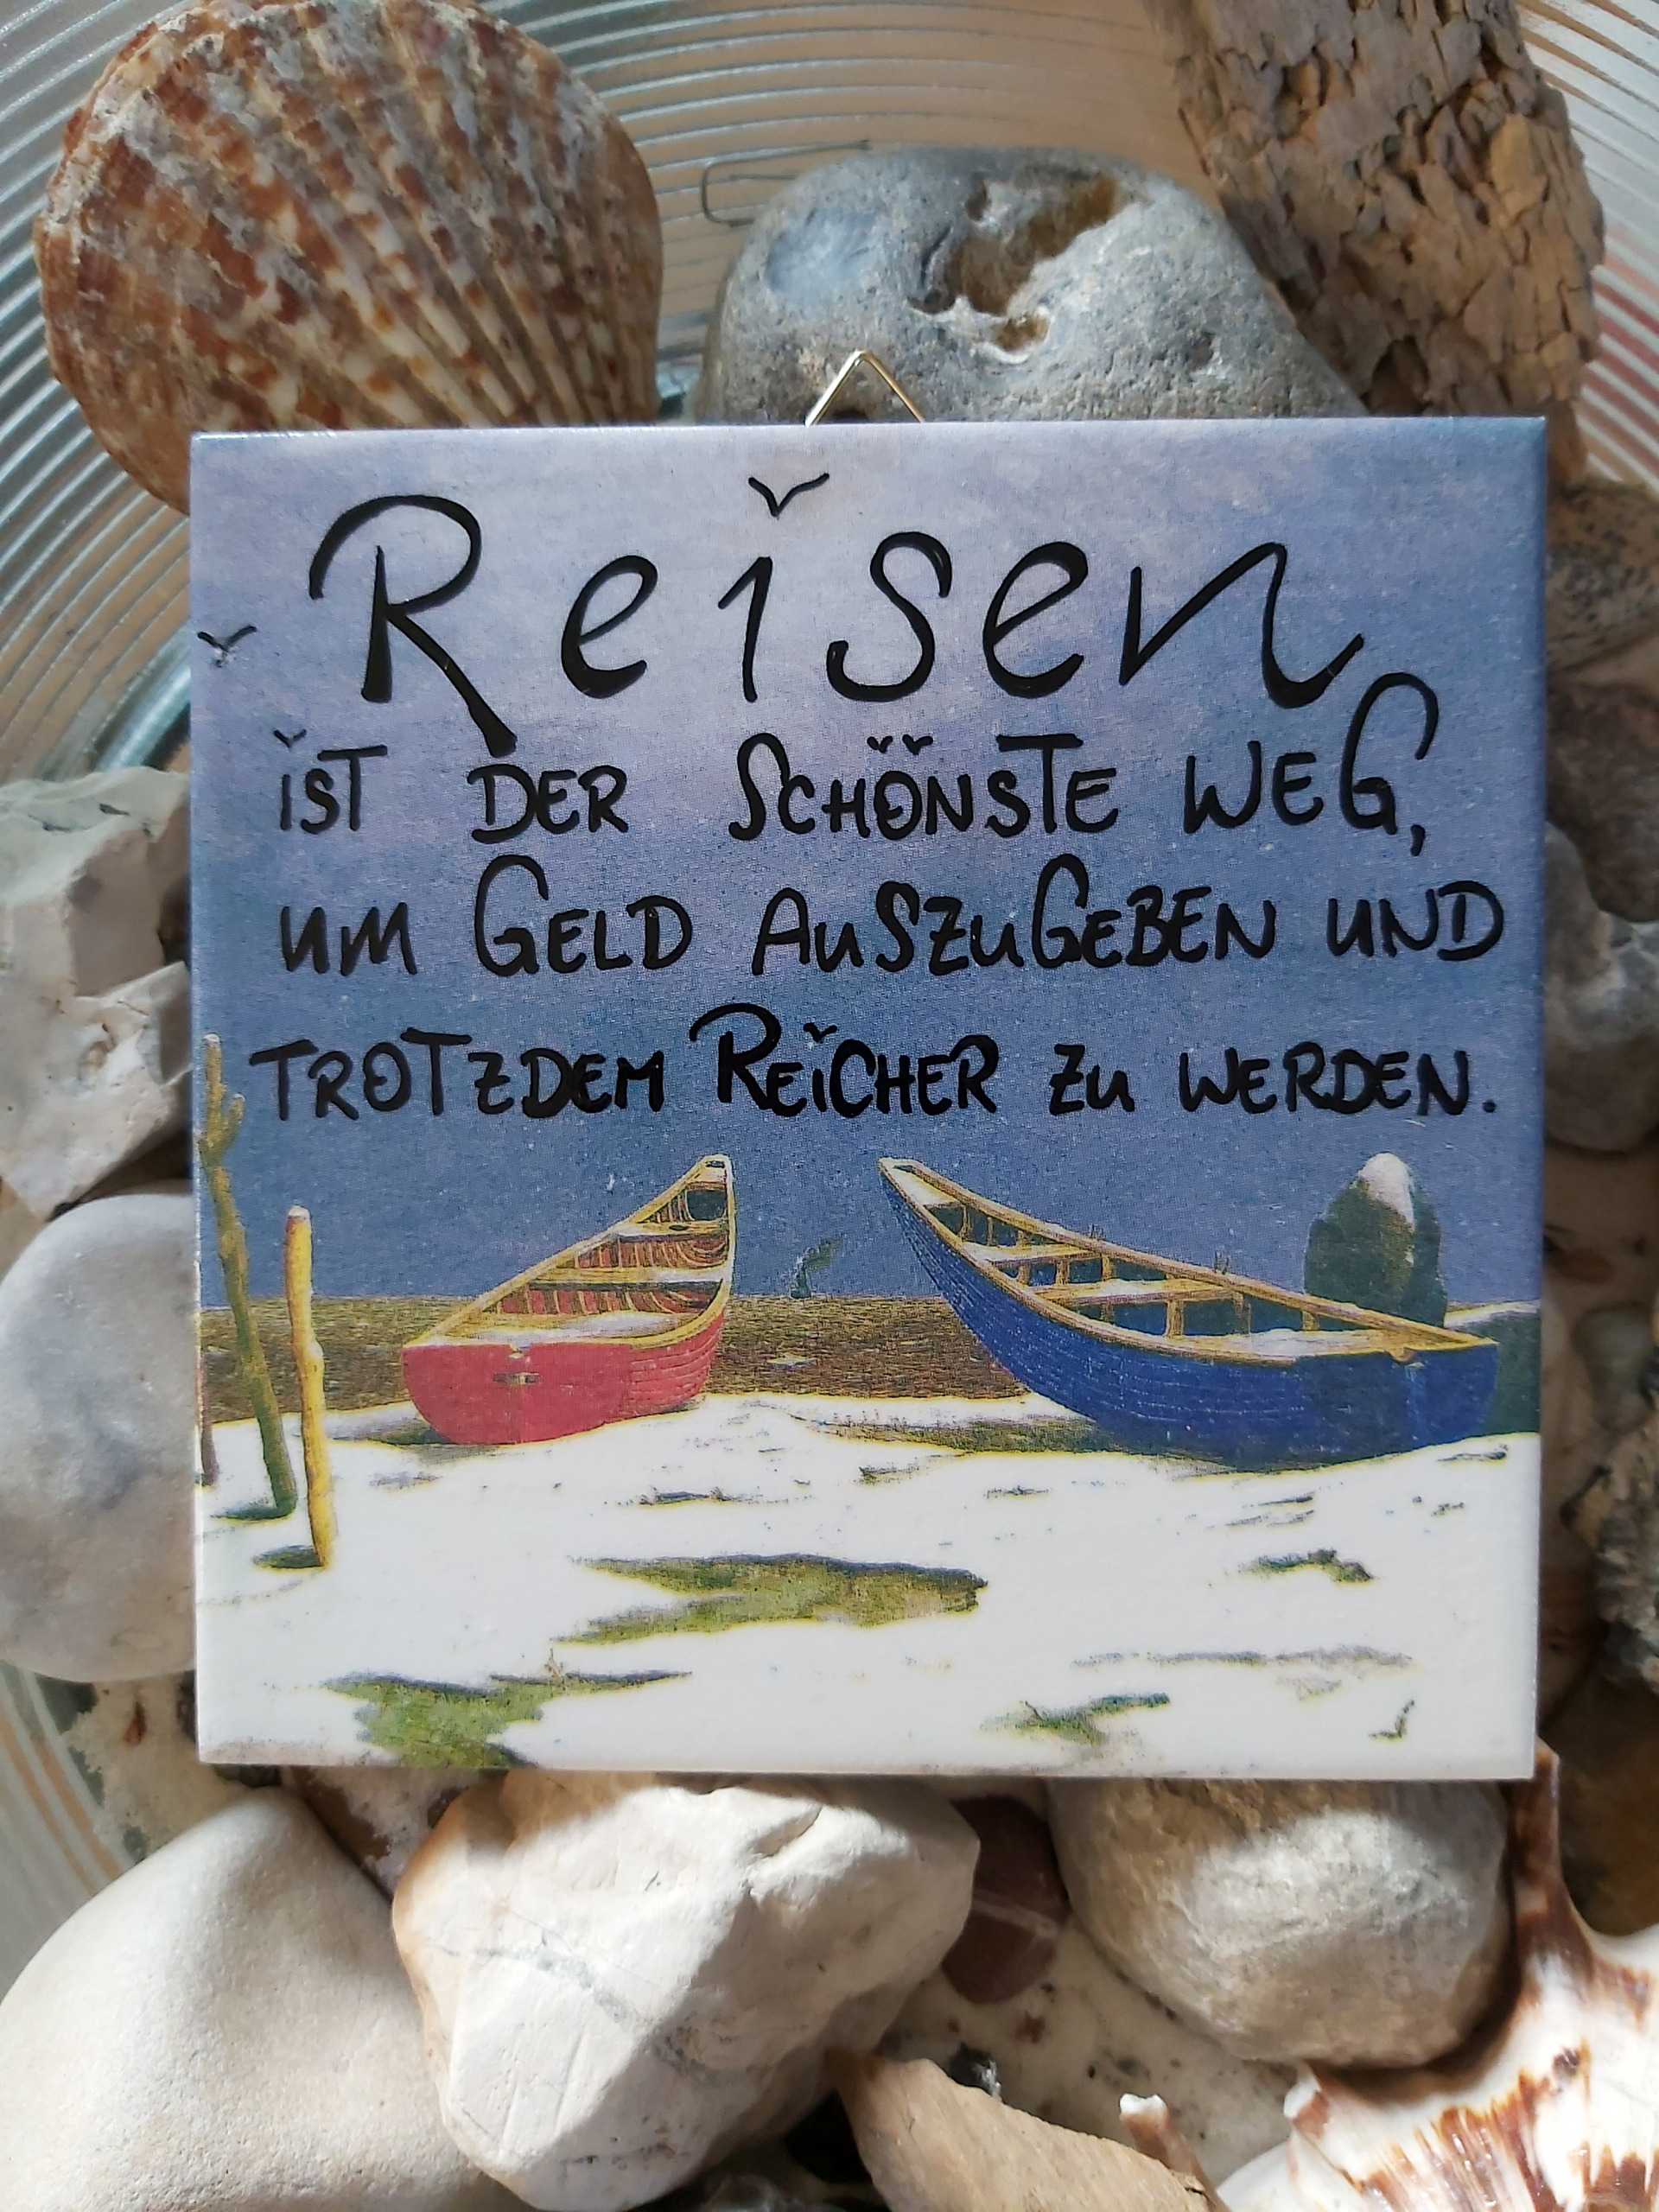 Reisen
iST DER SCHÖNSTE WEG,
UM GELD AUSZUGEBEN UND
TROTZDEM REiCHER ZU WERDEN.